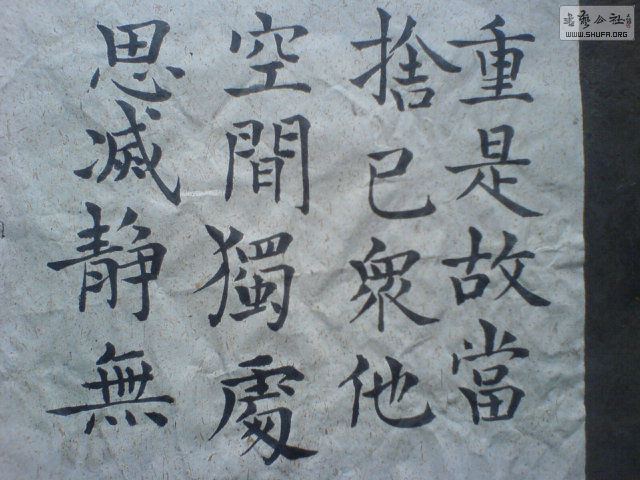 重是故當
捨已衆他
空間獨處
思滅静無
书艺公社
WWW.SHUFA.ORG